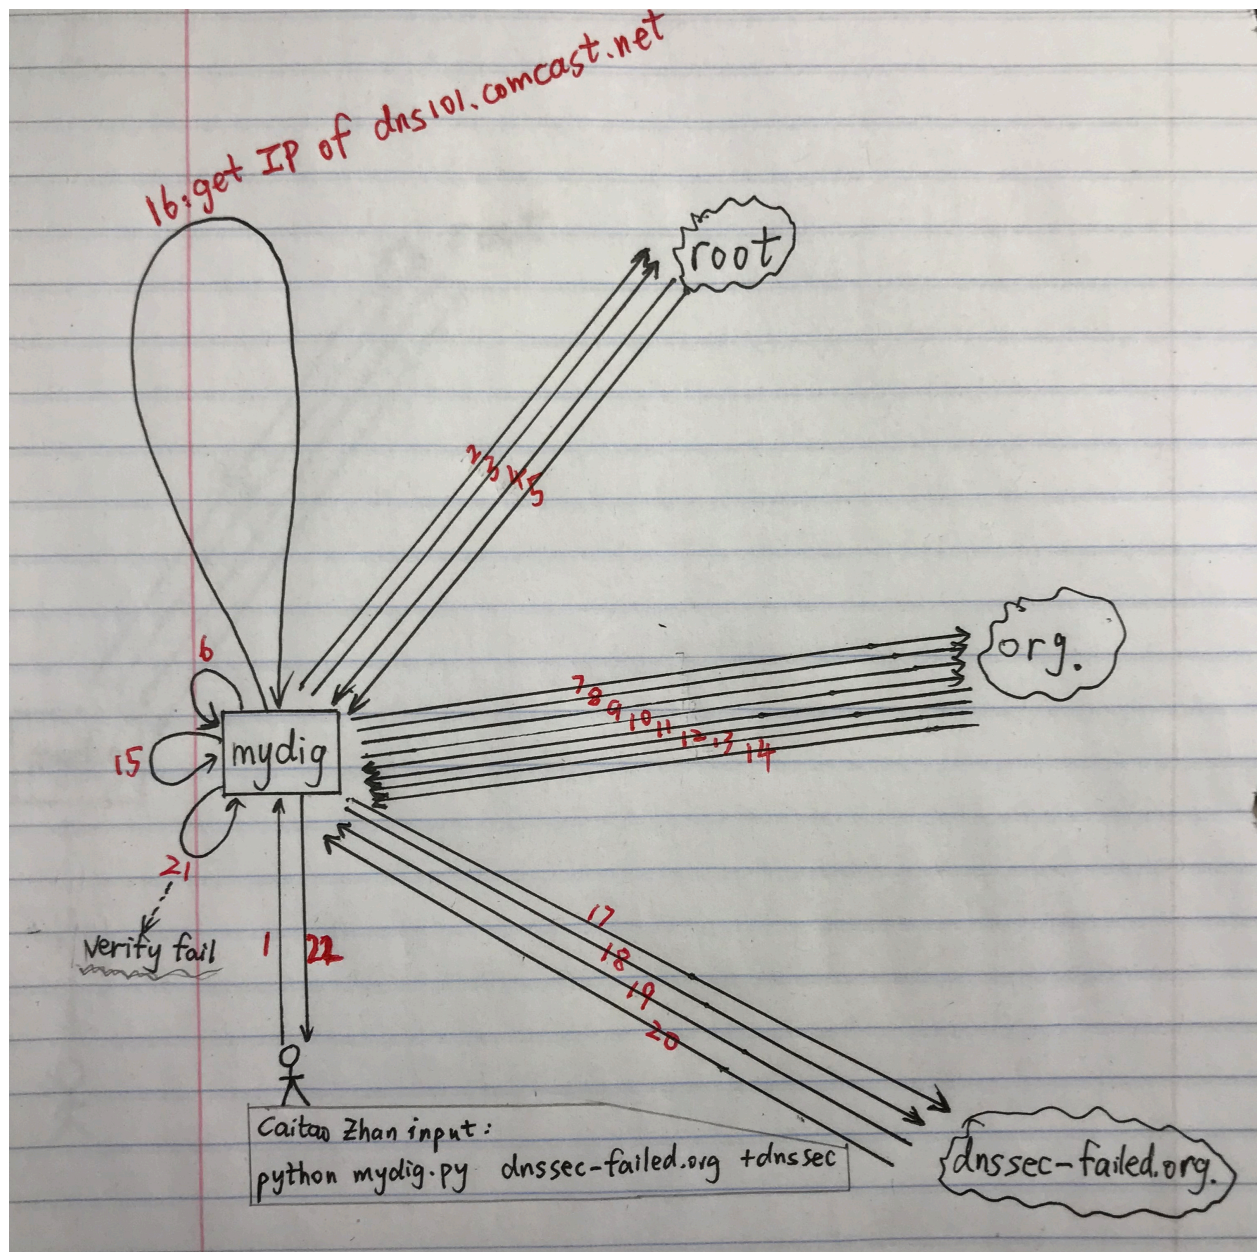 16: get IP of dns101.comcast.net
root
2
3
4
5
org.
6
7
8
9
10
11
12
13
14
15
mydig
21
Verify fail
1
22
17
18
19
20
Caitao Zhan input:
python mydig.py dnssec-failed.org +dnssec
dnssec-failed.org.